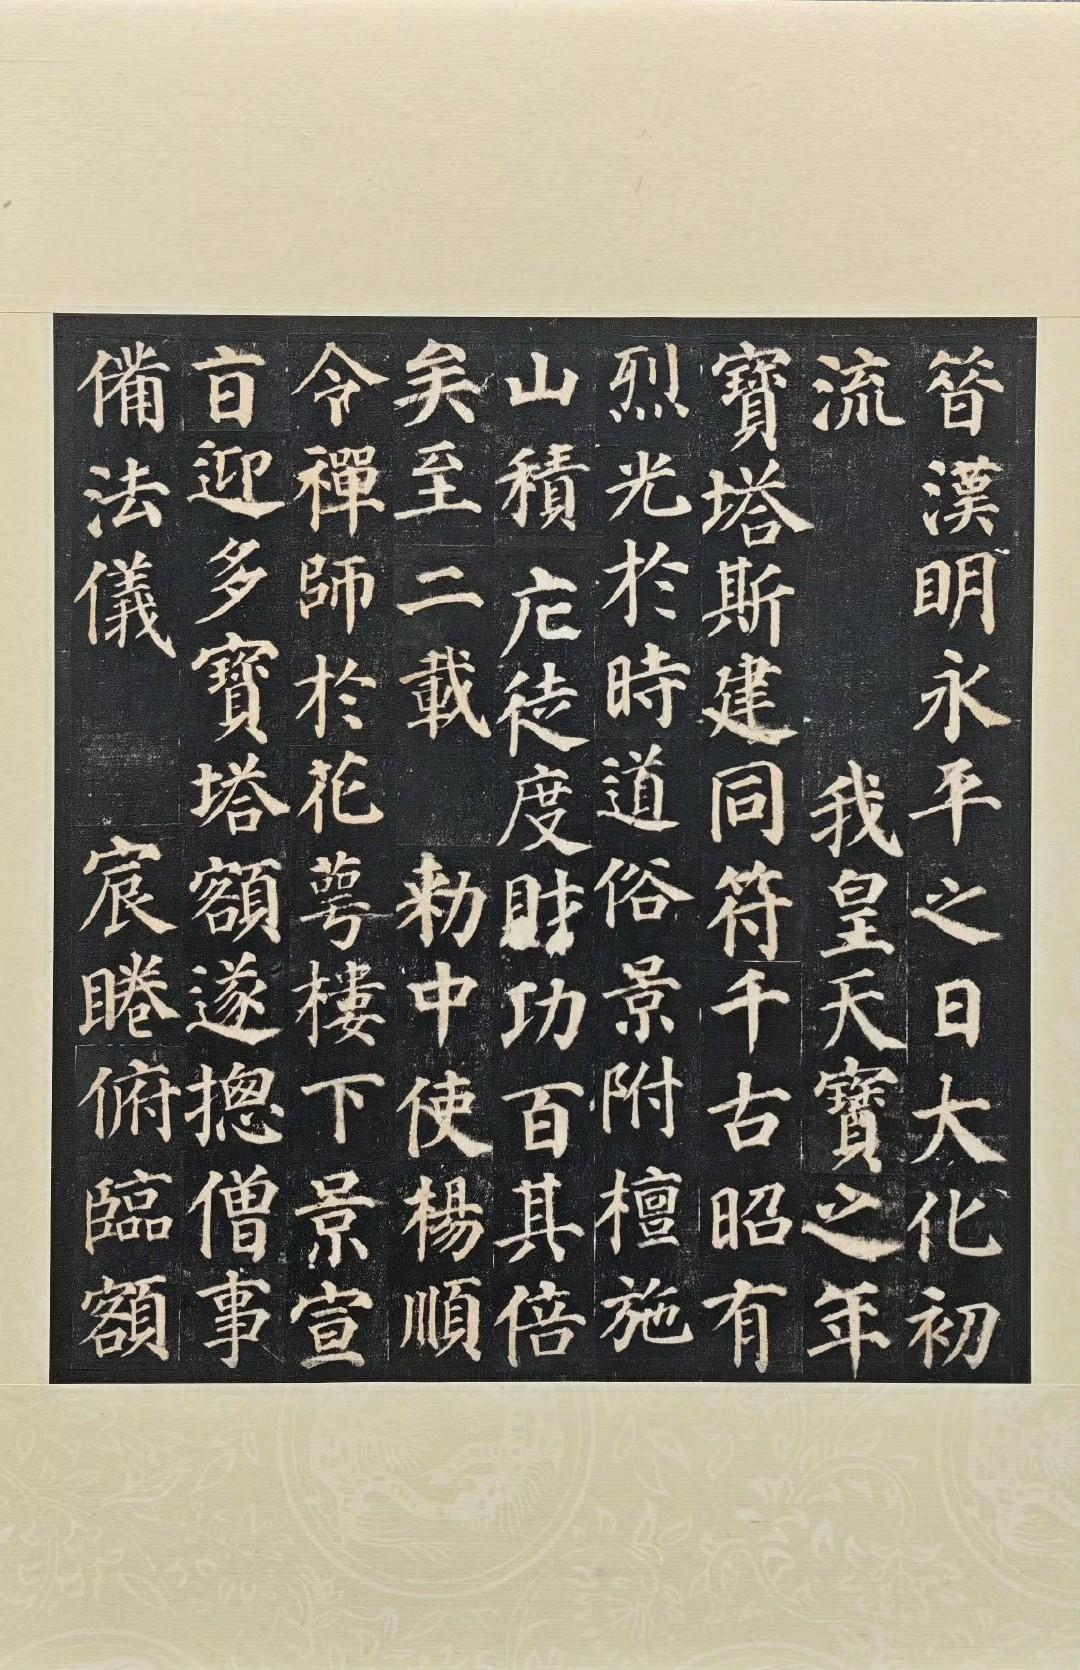 昔漢明永平之日大化初
流我皇天寶之年
寶塔斯建同符千古昭有
烈光於時道俗景附檀施
山積庀徒度財功百其倍
矣至二載勑中使楊順
令禪師於花萼樓下景宣
旨迎多寶塔額遂摠僧事
備法儀宸睠俯臨額